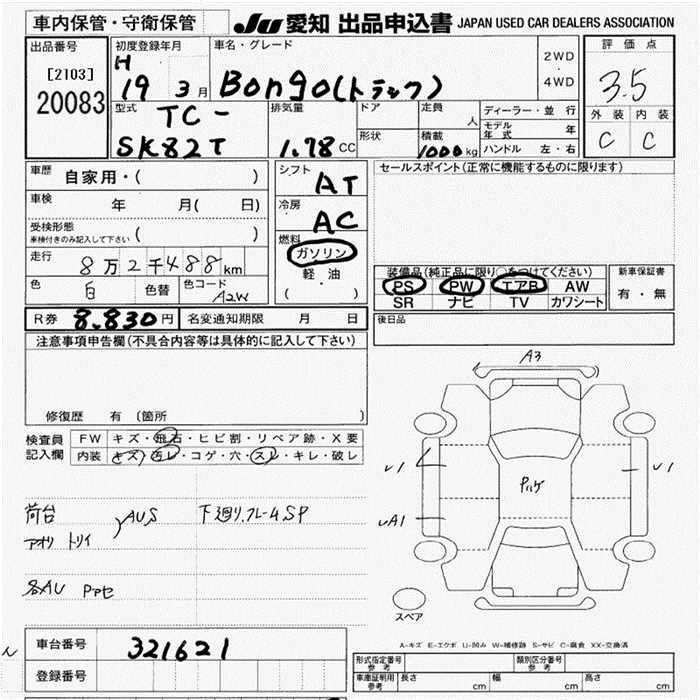 車内保管・守衛保管 JU 愛知 出品申込書 JAPAN USED CAR DEALERS ASSOCIATION
出品番号 初度登録年月 車名・グレード 2WD 評価点
[2103] H 19 3月 Bongo(トラック) 4WD 3.5
20083 型式 TC- 排気量 ドア 定員 人 ディーラー・並行 外装 内装
SK82T 1.78CC 形状 積載 1000kg モデル年式 年 C C
ハンドル 左・右
車歴 自家用・( ) シフト AT セールスポイント(正常に機能するものに限ります)
車検 年 月( 日) 冷房 AC
受検形態 ( )
車検付きのみ記入して下さい
燃料 ガソリン
走行 8万2千488km 軽・油 装備品(純正品に限り○をつけてください) 新車保証書
色 白 色替 色コード A2W ( ) PS PW エアB AW 有・無
SR ナビ TV カワシート
R券 8,830円 名変通知期限 月 日 後日品
注意事項申告欄(不具合内容等は具体的に記入して下さい)
A3
修復歴 有 (箇所 )
検査員 FW キズ・飛石・ヒビ割・リペア跡・X要
記入欄 内装 キズ・汚レ・コゲ・穴・スレ・キレ・破レ
荷台 AUS 下廻り、フレームSP
アオリ トリイ
各AU
レ1 レ1
レA1
スペア
A-キズ E-エクボ U-凹み W-補修跡 S-サビ C-腐食 XX-交換済
車台番号 321621
登録番号
形式指定番号 参考 類別区分番号 参考
車庫証明用 参考 長さ cm 幅 cm 高さ cm